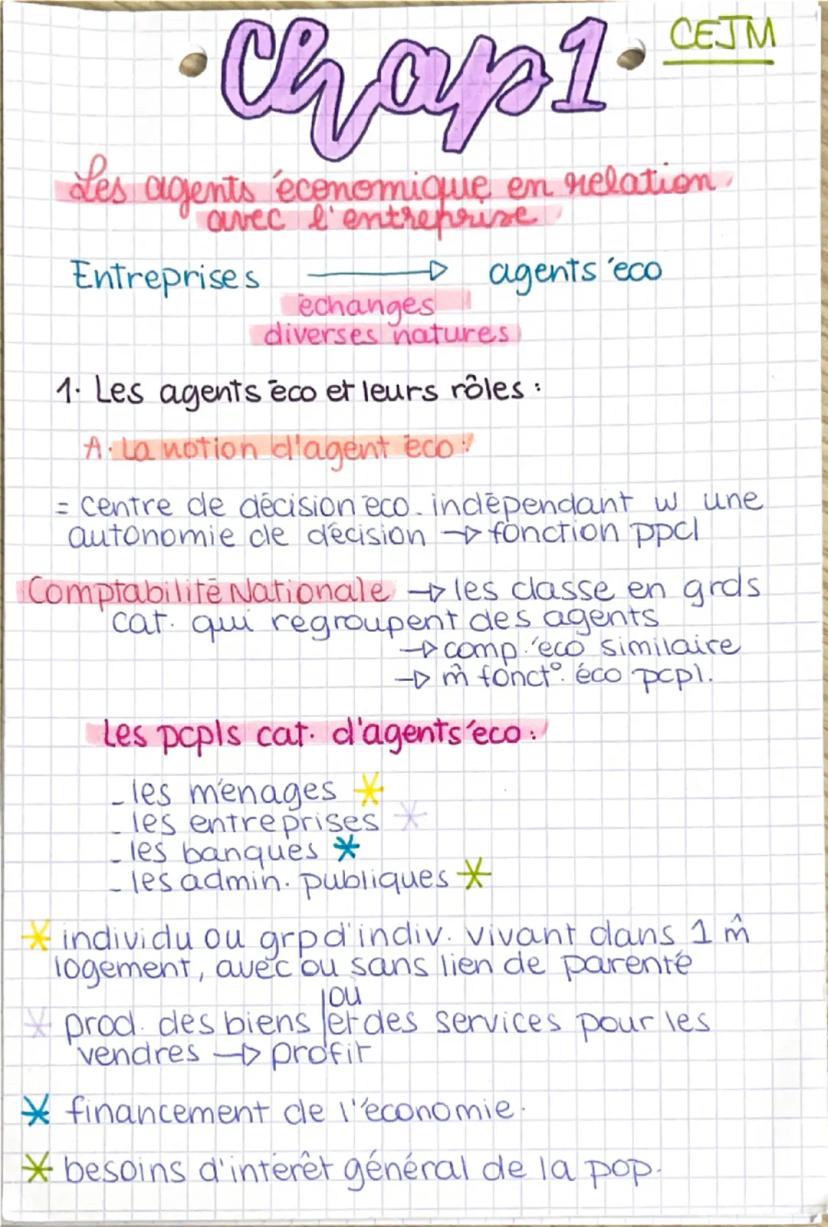 Chap 1
CEJM
Les agents économique en relation
avec l'entreprise
Entreprises → agents éco
échanges
diverses natures
1. Les agents éco et leurs rôles :
A. La notion d'agent éco :
= centre de décision éco. indépendant w une
autonomie de décision → fonction ppcl
Comptabilité Nationale → les classe en grds
cat. qui regroupent des agents
→ comp. éco similaire
→ m̂ fonct°. éco pcpl.
Les pcpls cat. d'agents éco :
- les ménages *
- les entreprises *
- les banques *
- les admin. publiques *
* individu ou grp d'indiv. vivant dans 1 m̂
logement, avec ou sans lien de parenté
ou
* prod. des biens |et des services pour les
vendres → profit
* financement de l'économie.
* besoins d'intérêt général de la pop.